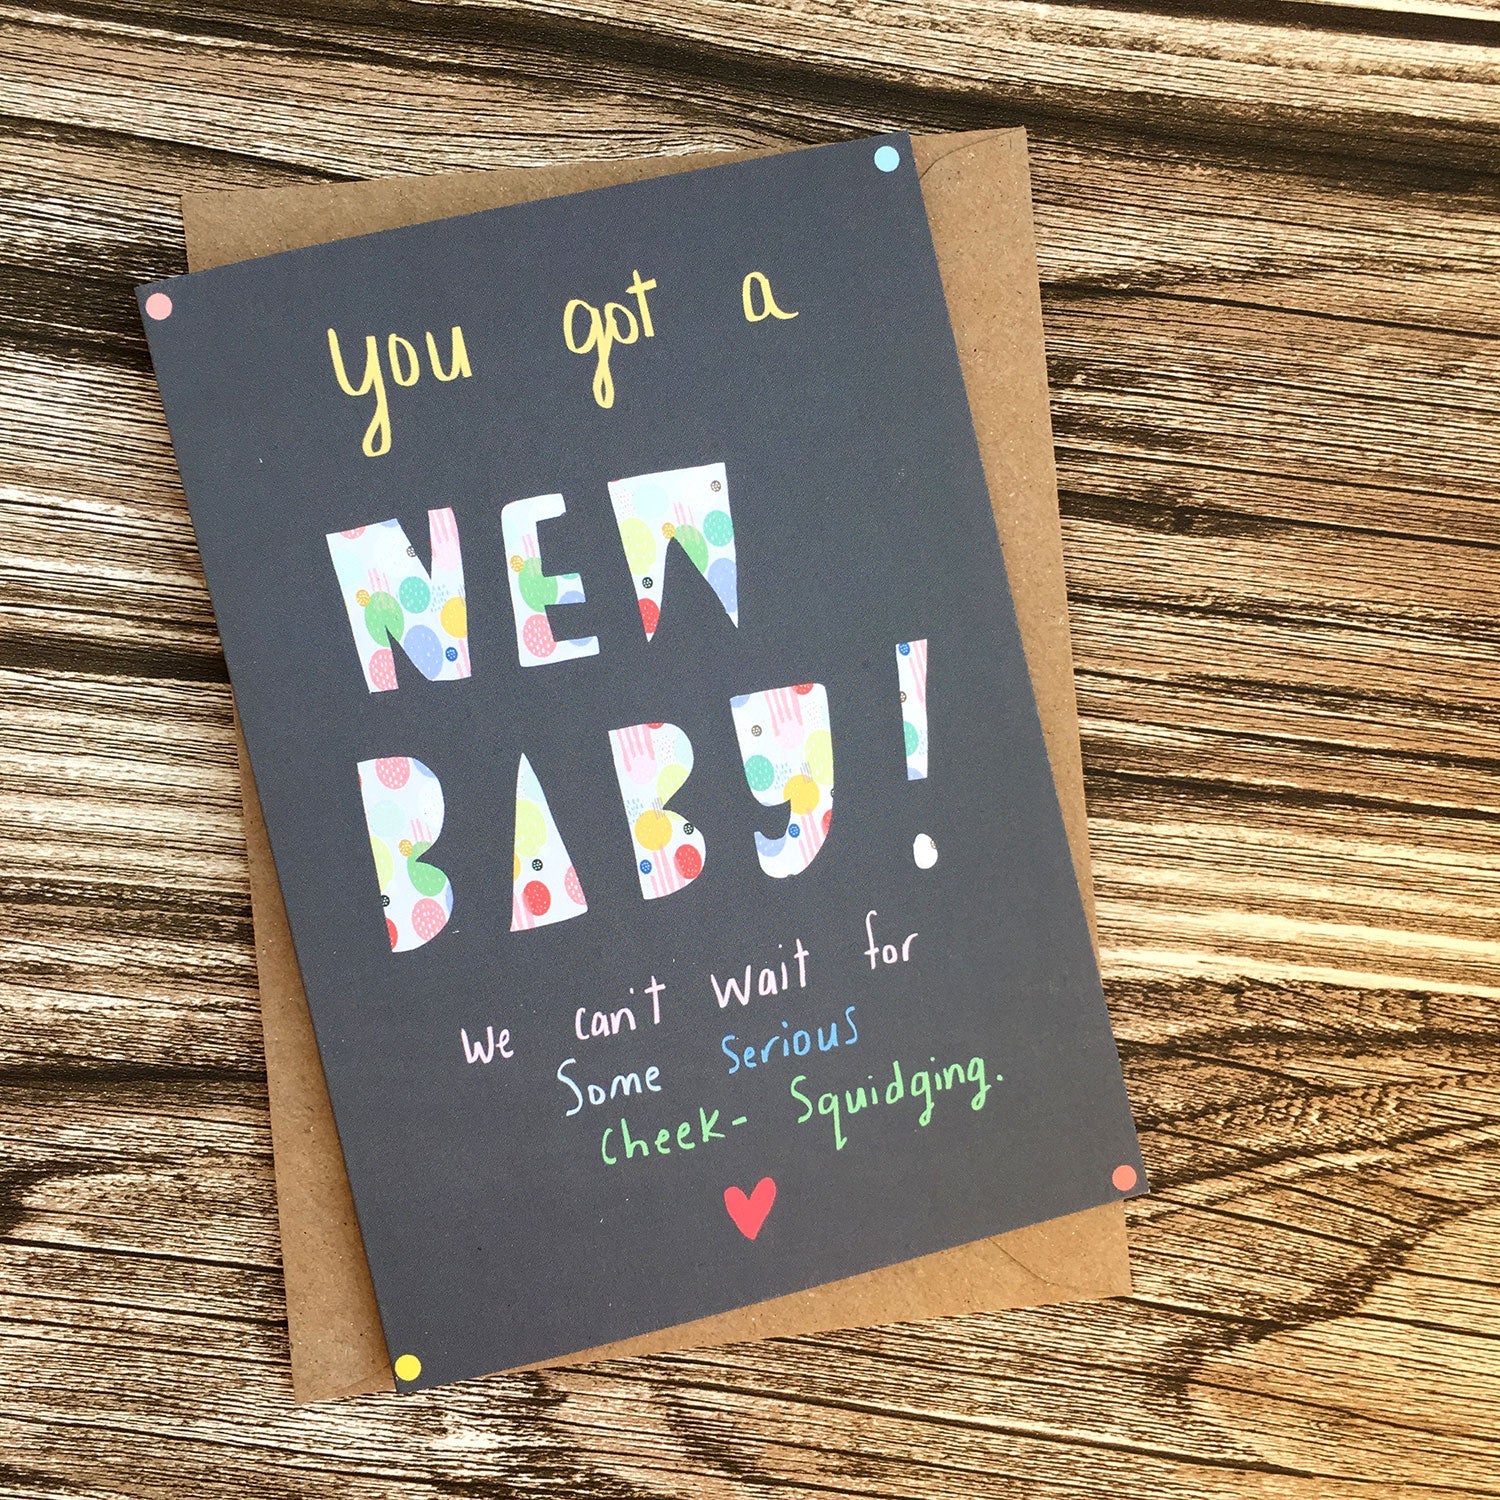 you got a
NEW
BABY!
We can't wait for
Some Serious
cheek- Squidging.